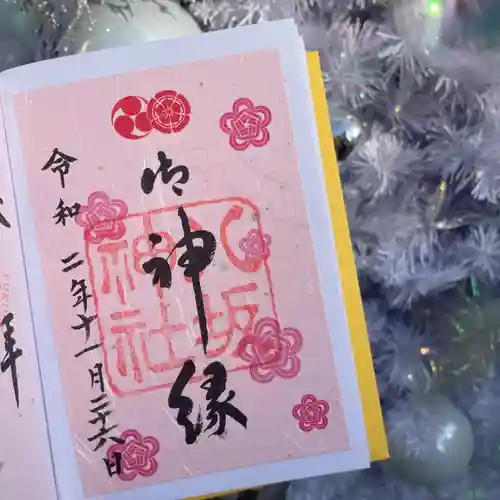 御神縁
令和二年十一月二十六日
八坂
神社
拝